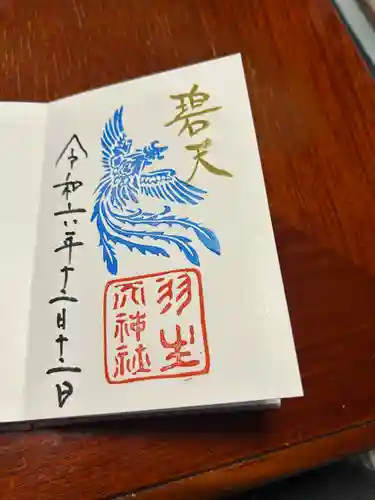 碧天
羽生
天神社
令和六年十二月十二日